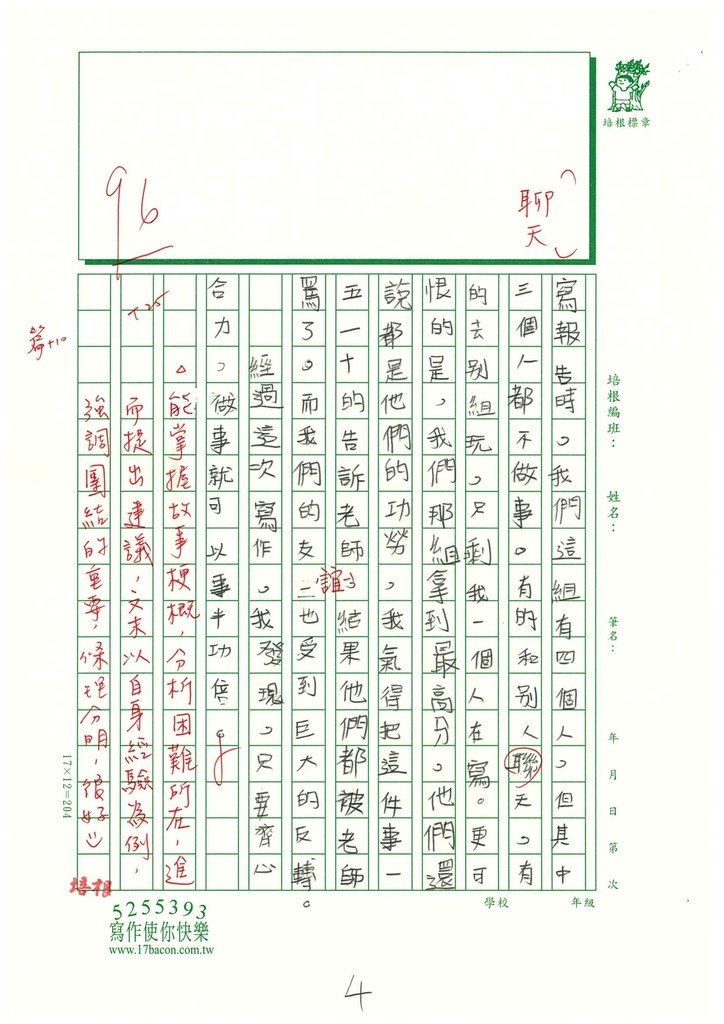 培根標章
聊天
96
寫報告時。我們這組有四個人。但其中
三個人都不做事。有的和別人聯天。有
的去別組玩。只剩我一個人在寫。更可
恨的是。我們那組拿到最高分。他們還
說都是他們的功勞。我氣得把這件事一
五一十的告訴老師。結果他們都被老師
罵了。而我們的友誼也受到巨大的反轉。
經過這次寫作。我發現。只要齊心
合力。做事就可以事半功倍。
△能掌握故事梗概,分析困難所在,進
而提出建議,文末以自身經驗為例,
強調團結的重要,條理分明,很好
+25
篇+10
培根編班:
姓名:
筆名:
年 月 日 第 次
17×12=204
學校
年級
培根
5255393
寫作使你快樂
www.17bacon.com.tw
4